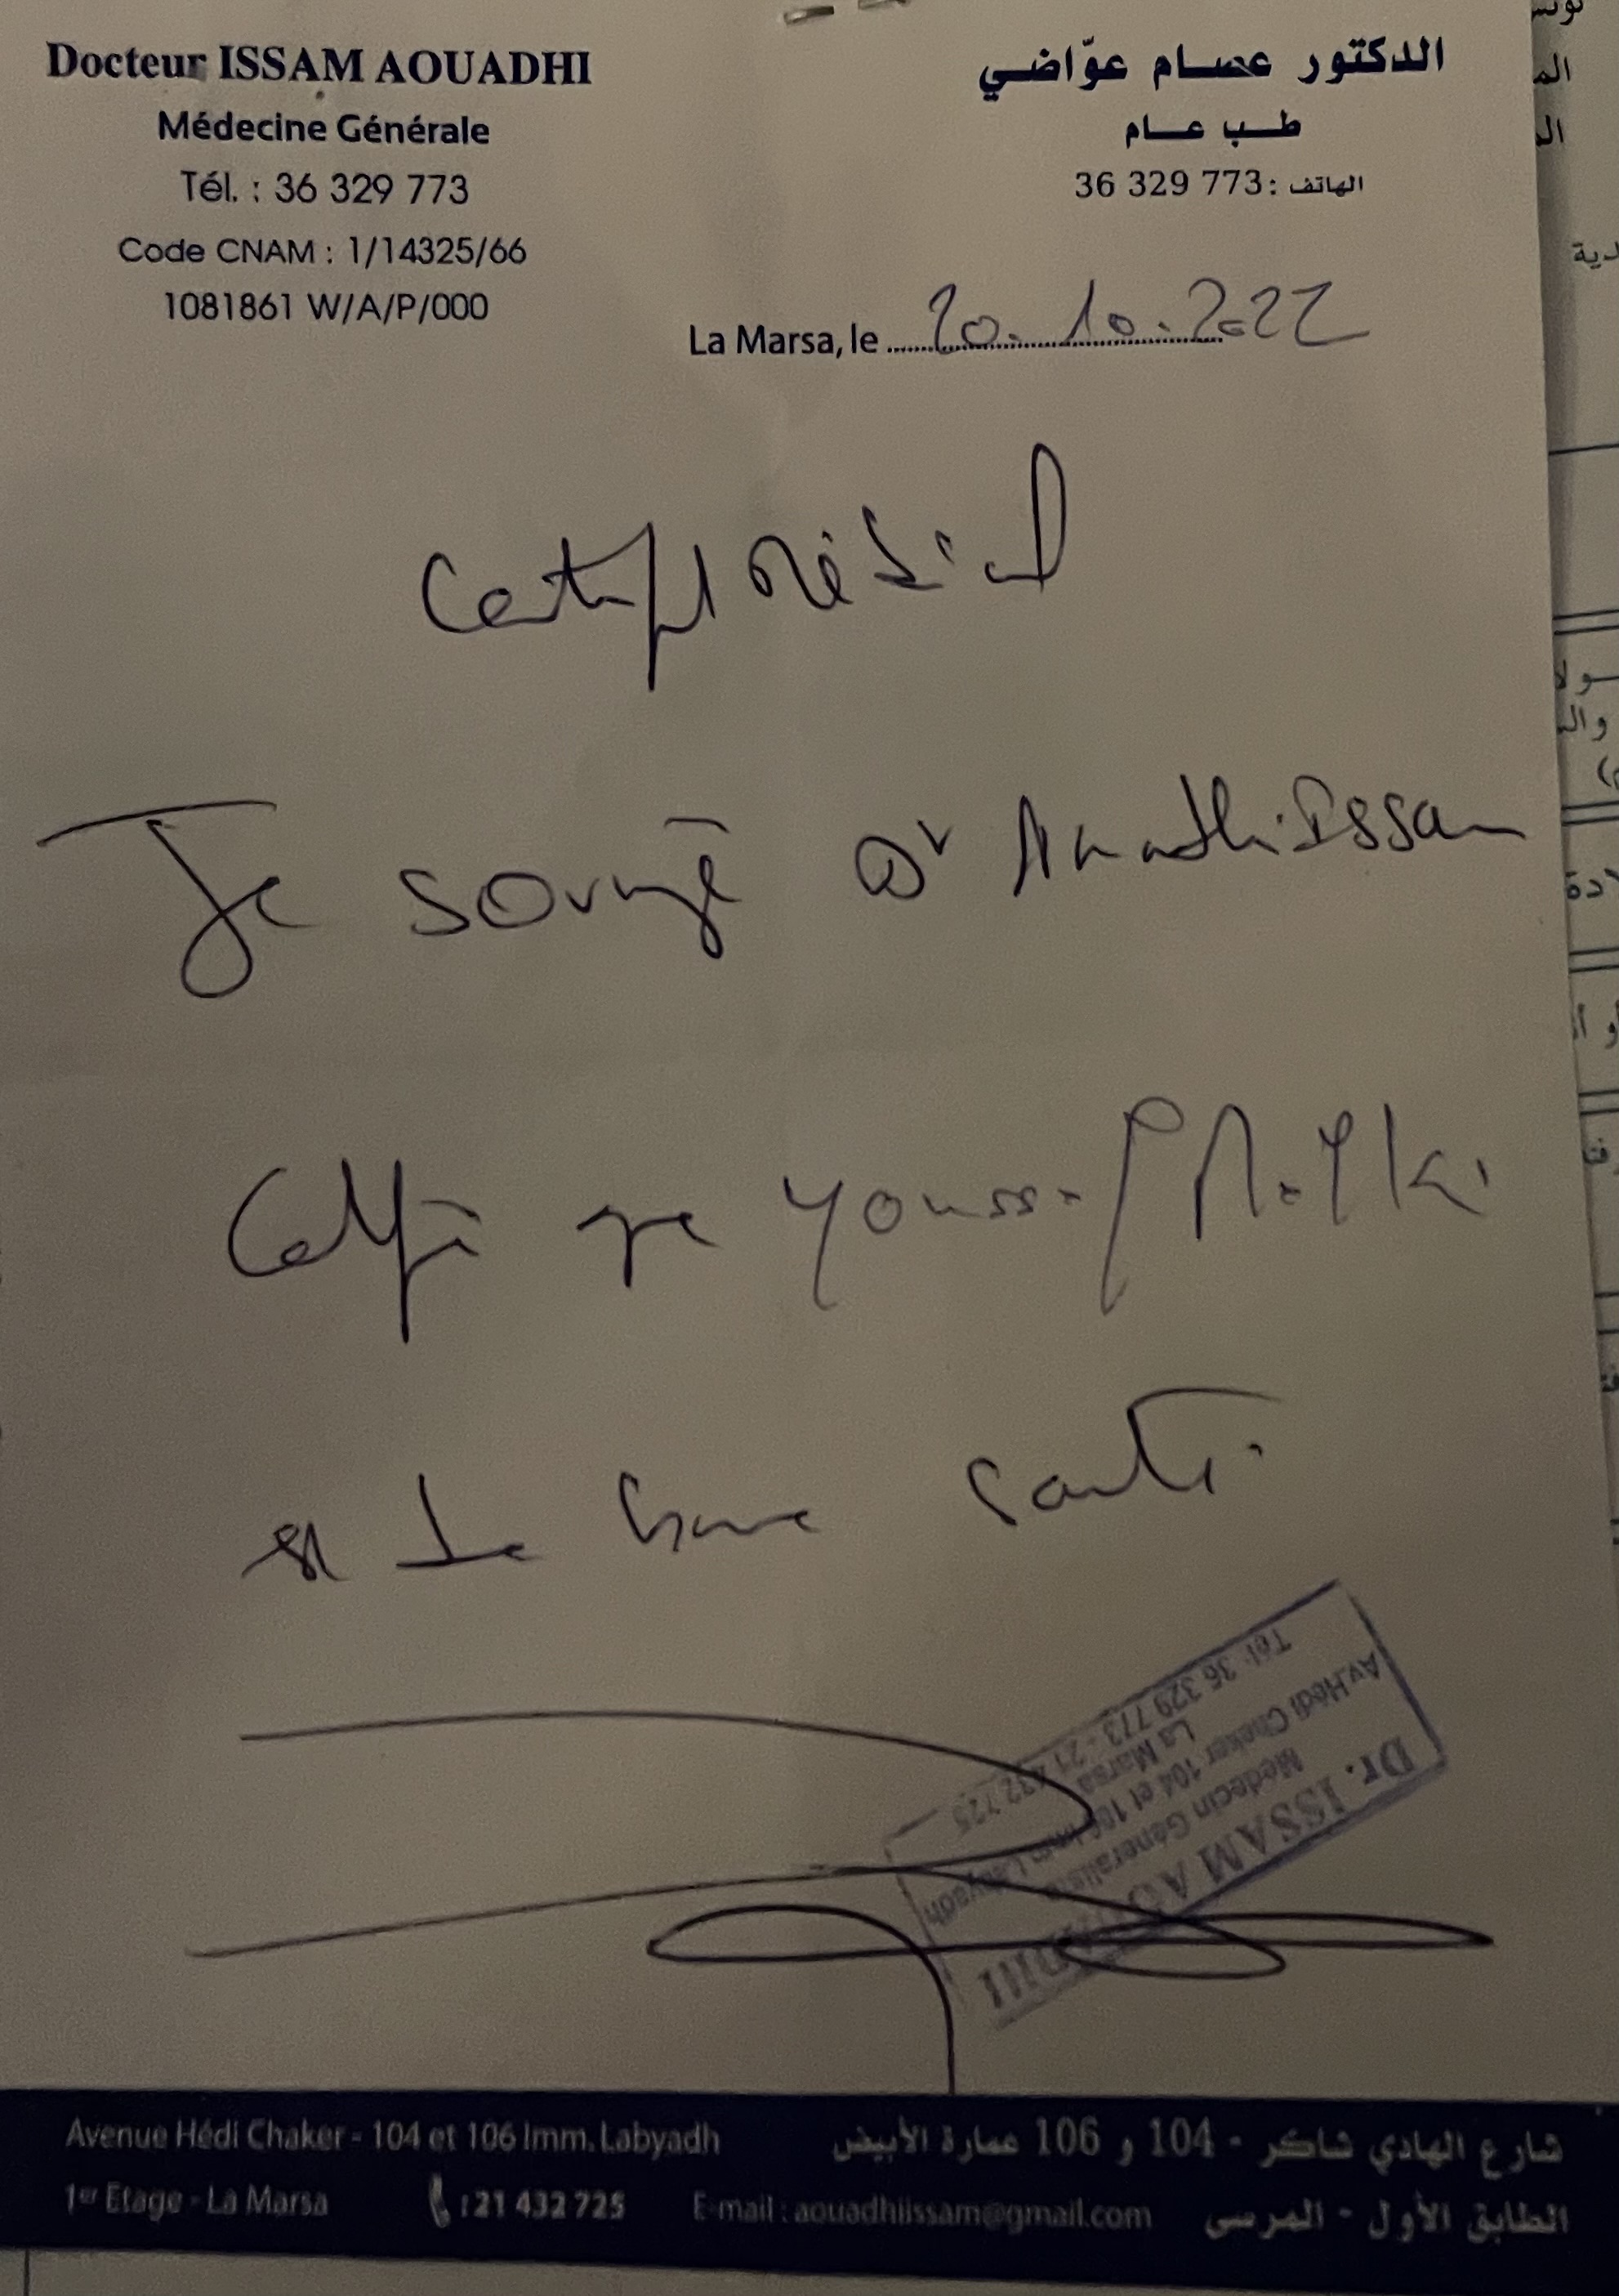 Docteur ISSAM AOUADHI
Médecine Générale
Tél. : 36 329 773
Code CNAM : 1/14325/66
1081861 W/A/P/000
الدكتور عصام عوّاضي
طب عام
الهاتف : 36 329 773
La Marsa, le 20.10.2022
Certif Médical
Je soussigné Dr Aouadhi Issam
Certifie que Youssef
est de bonne santé.
Dr. ISSAM AOUADHI
Médecin Généraliste
Av. Hédi Chaker 104 et 106 Imm Labyadh
La Marsa
Tél: 36 329 773 - 21 432 725
Avenue Hédi Chaker - 104 et 106 Imm. Labyadh
1er Etage - La Marsa : 21 432 725 E-mail : aouadhiissam@gmail.com
شارع الهادي شاكر - 104 و 106 عمارة الأبيض
الطابق الأول - المرسى